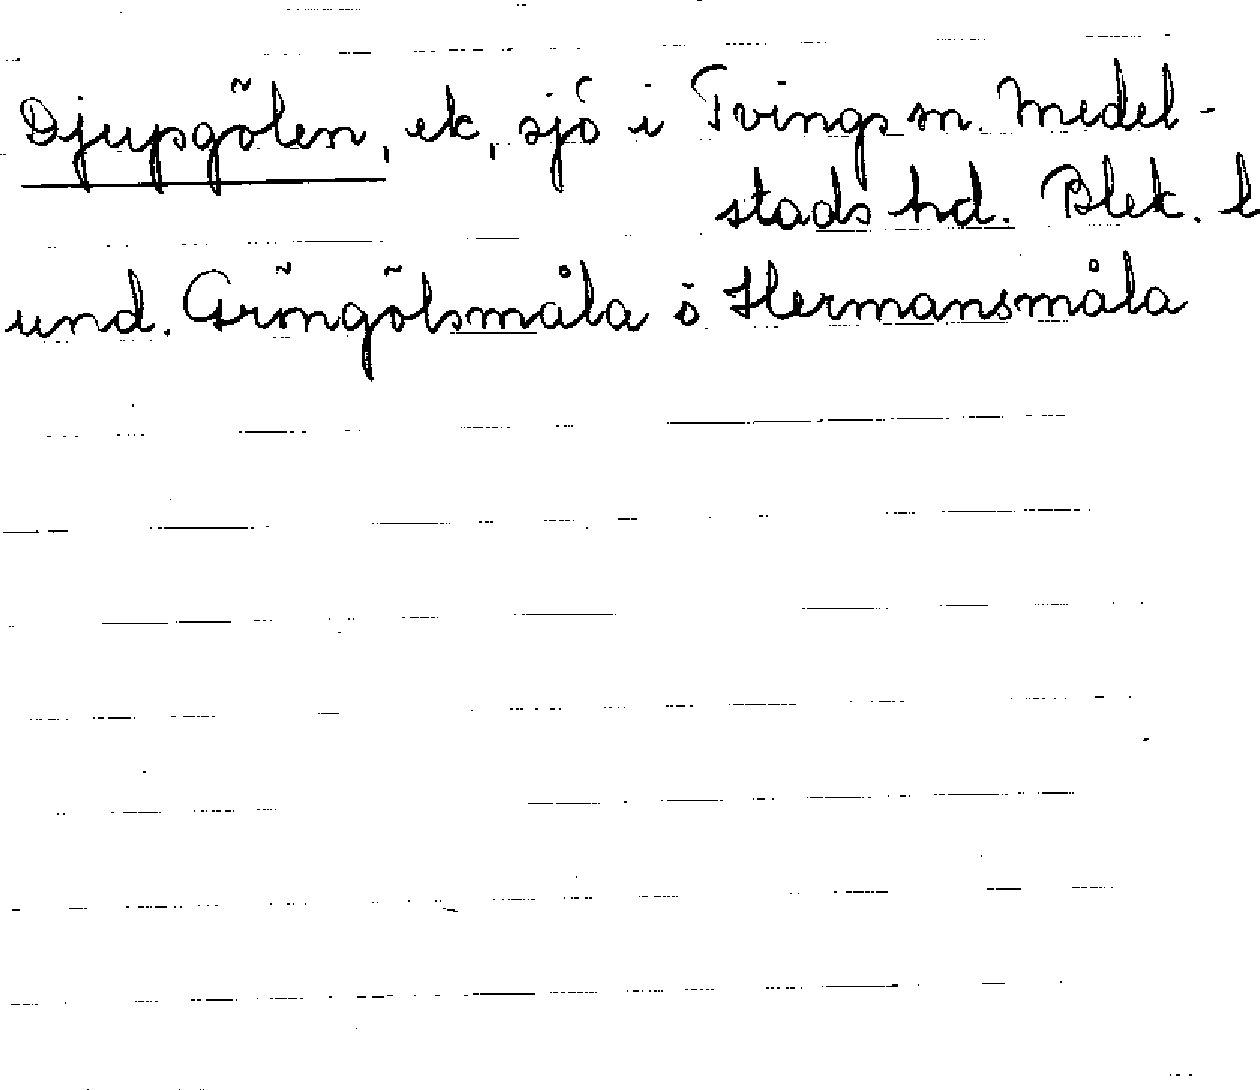 Djupgölen, ek, sjö i Tvings sn. Medel-
stads hd. Blek. l
und. Gröngölsmåla ö Hermansmåla